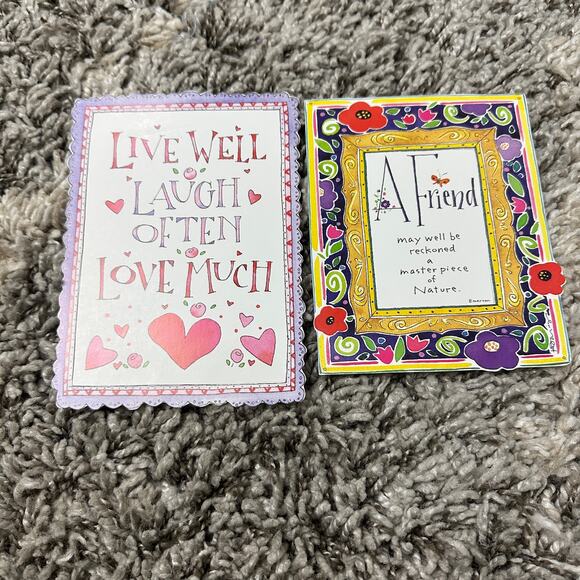 LIVE WELL
LAUGH
OFTEN
LOVE MUCH
A Friend
may well be
reckoned
a
masterpiece
of
Nature.
Emerson